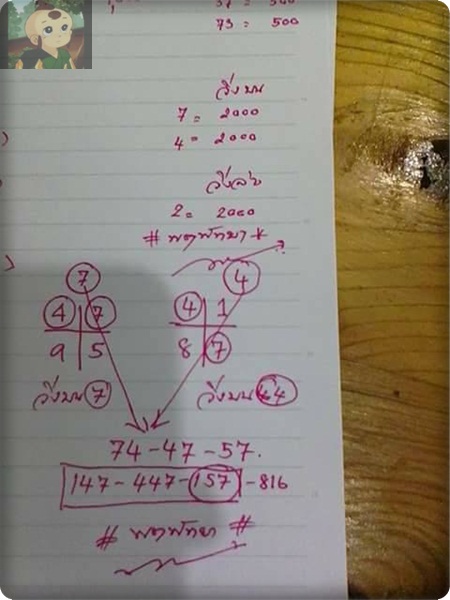 73 = 500
วิ่งบน
7 = 2000
4 = 2000
วิ่งล่าง
2 = 2000
# พตพัทยา *
7 4
4 7 4 1
9 5 8 7
วิ่งบน 7 วิ่งบน 4
74-47-57.
147-447-157-816
# พตพัทยา #